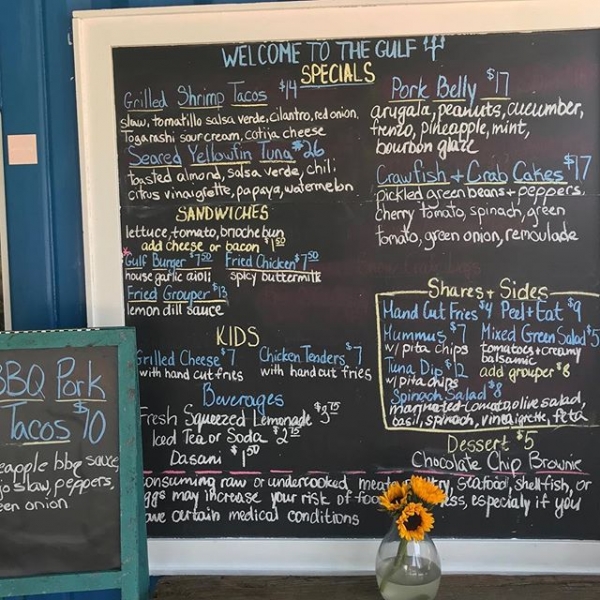 WELCOME TO THE GULF
SPECIALS
Grilled Shrimp Tacos $14
slaw, tomatillo salsa verde, cilantro, red onion,
Togarashi sour cream, cotija cheese
Seared Yellowfin Tuna $26
toasted almond, salsa verde, chili
citrus vinaigrette, papaya, watermelon
SANDWICHES
lettuce, tomato, brioche bun
add cheese or bacon $1.50
Gulf Burger $7.50 Fried Chicken $7.50
house garlic aioli spicy buttermilk
Fried Grouper $13
lemon dill sauce
KIDS
Grilled Cheese $7 Chicken Tenders $7
with hand cut fries with hand cut fries
Beverages
Fresh Squeezed Lemonade $3.75
Iced Tea or Soda $2.75
Dasani $1.50
Pork Belly $17
arugala, peanuts, cucumber,
fresno, pineapple, mint,
bourbon glaze
Crawfish + Crab Cakes $17
pickled green beans + peppers,
cherry tomato, spinach, green
tomato, green onion, remoulade
Shares + Sides
Hand Cut Fries $4 Peel + Eat $9
Hummus $7 Mixed Green Salad $5
w/ pita chips tomatoes + creamy
balsamic
Tuna Dip $12 add grouper $8
w/ pita chips
Spinach Salad $8
marinated tomato, olive salad,
basil, spinach, vinaigrette, feta
Dessert $5
Chocolate Chip Brownie
consuming raw or undercooked seafood, shellfish, or
eggs may increase your risk of especialy if you
have certain medical conditions
BBQ Pork
Tacos $10
eapple bbq sauce,
jo slaw, peppers,
een onion